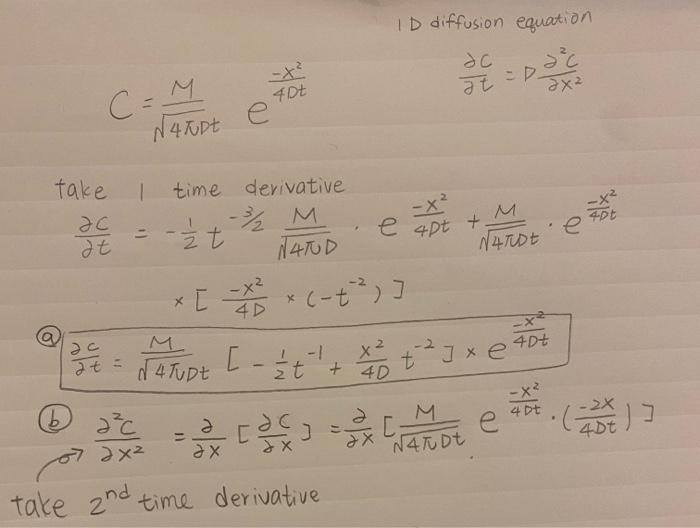 1D diffusion equation
C = M/√(4πDt) e^(-x²/4Dt)
∂C/∂t = D ∂²C/∂x²
take 1 time derivative
∂C/∂t = -1/2 t^(-3/2) M/√(4πD) · e^(-x²/4Dt) + M/√(4πDt) · e^(-x²/4Dt)
× [ -x²/4D × (-t^(-2)) ]
ⓐ ∂C/∂t = M/√(4πDt) [ -1/2 t^(-1) + x²/4D t^(-2) ] × e^(-x²/4Dt)
ⓑ ∂²C/∂x² = ∂/∂x [ ∂C/∂x ] = ∂/∂x [ M/√(4πDt) e^(-x²/4Dt) · (-2x/4Dt) ]
take 2nd time derivative